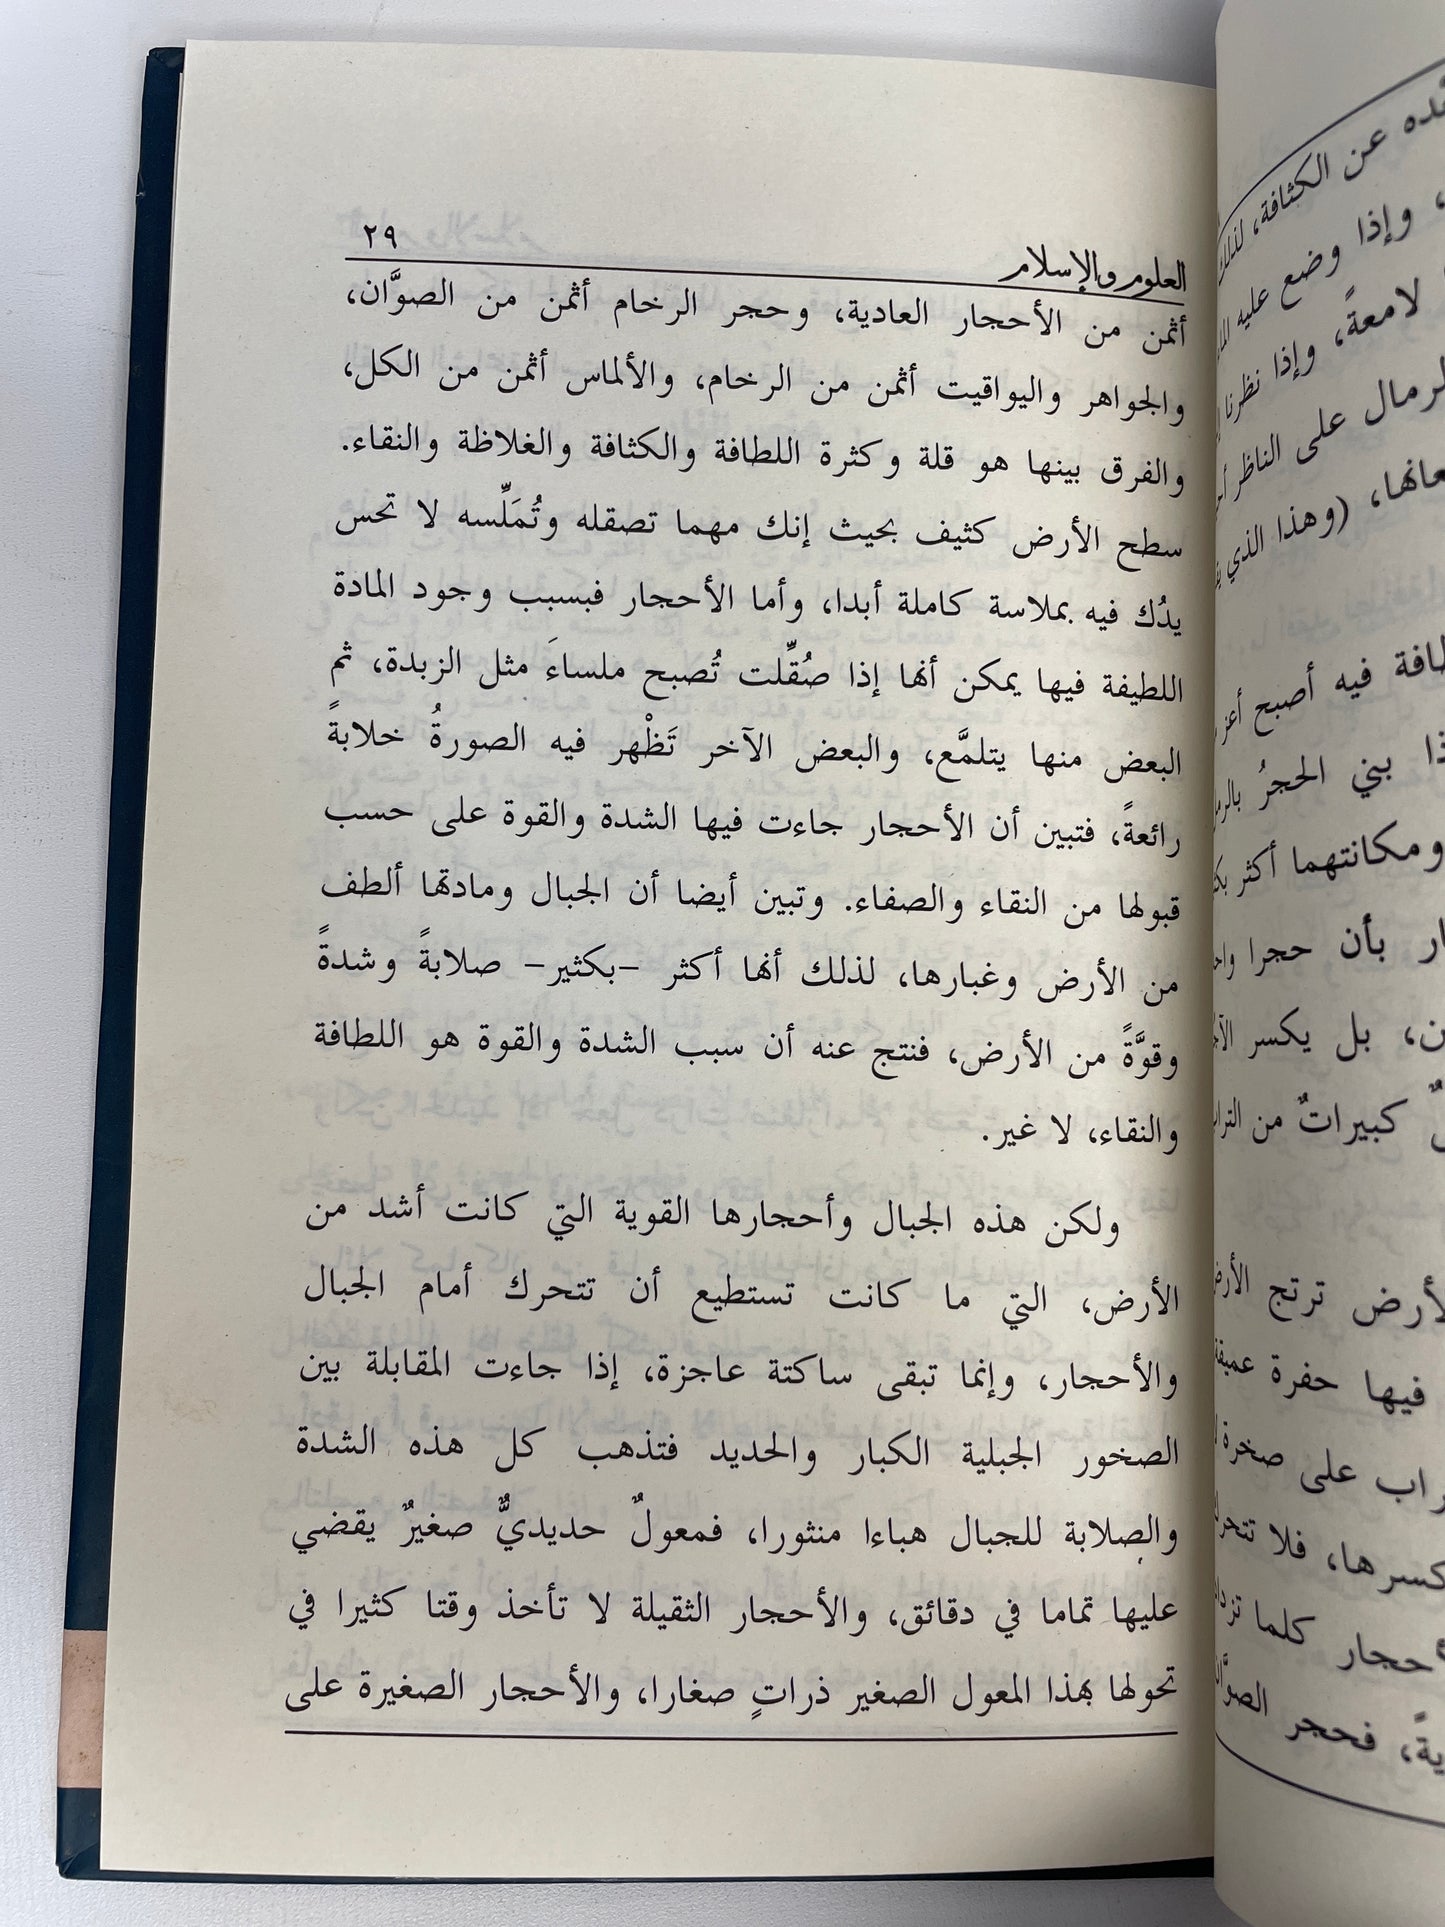 العلوم والإسلام ٢٩
أثمن من الأحجار العادية، وحجر الرخام أثمن من الصوَّان،
والجواهر واليواقيت أثمن من الرخام، والألماس أثمن من الكل،
والفرق بينها هو قلة وكثرة اللطافة والكثافة والغلاظة والنقاء.
سطح الأرض كثيف بحيث إنك مهما تصقله وتُمَلِّسه لا تحس
يدُك فيه بملاسة كاملة أبدا، وأما الأحجار فبسبب وجود المادة
اللطيفة فيها يمكن أنها إذا صُقِّلت تُصبح ملساءَ مثل الزبدة، ثم
البعض منها يتلمَّع، والبعض الآخر تَظْهر فيه الصورةُ خلابةً
رائعةً، فتبين أن الأحجار جاءت فيها الشدة والقوة على حسب
قبولها من النقاء والصفاء. وتبين أيضا أن الجبال ومادتها ألطف
من الأرض وغبارها، لذلك أنها أكثر –بكثير– صلابةً وشدةً
وقوَّةً من الأرض، فنتج عنه أن سبب الشدة والقوة هو اللطافة
والنقاء، لا غير.
ولكن هذه الجبال وأحجارها القوية التي كانت أشد من
الأرض، التي ما كانت تستطيع أن تتحرك أمام الجبال
والأحجار، وإنما تبقى ساكتة عاجزة، إذا جاءت المقابلة بين
الصخور الجبلية الكبار والحديد فتذهب كل هذه الشدة
والصلابة للجبال هباءا منثورا، فمعولٌ حديديٌّ صغيرٌ يقضي
عليها تماما في دقائق، والأحجار الثقيلة لا تأخذ وقتا كثيرا في
تحولها بهذا المعول الصغير ذراتٍ صغارا، والأحجار الصغيرة على
عن الكثافة، لذلك
وإذا وضع عليه
لامعةً، وإذا نظرنا
على الناظر
(وهذا الذي
فيه أصبح أعز
بني الحجرُ
ومكانتهما أكثر
بأن حجرا
بل يكسر
كبيراتٌ من
ترتج
فيها حفرة عميقة
على صخرة
فلا
كلما
فحجر